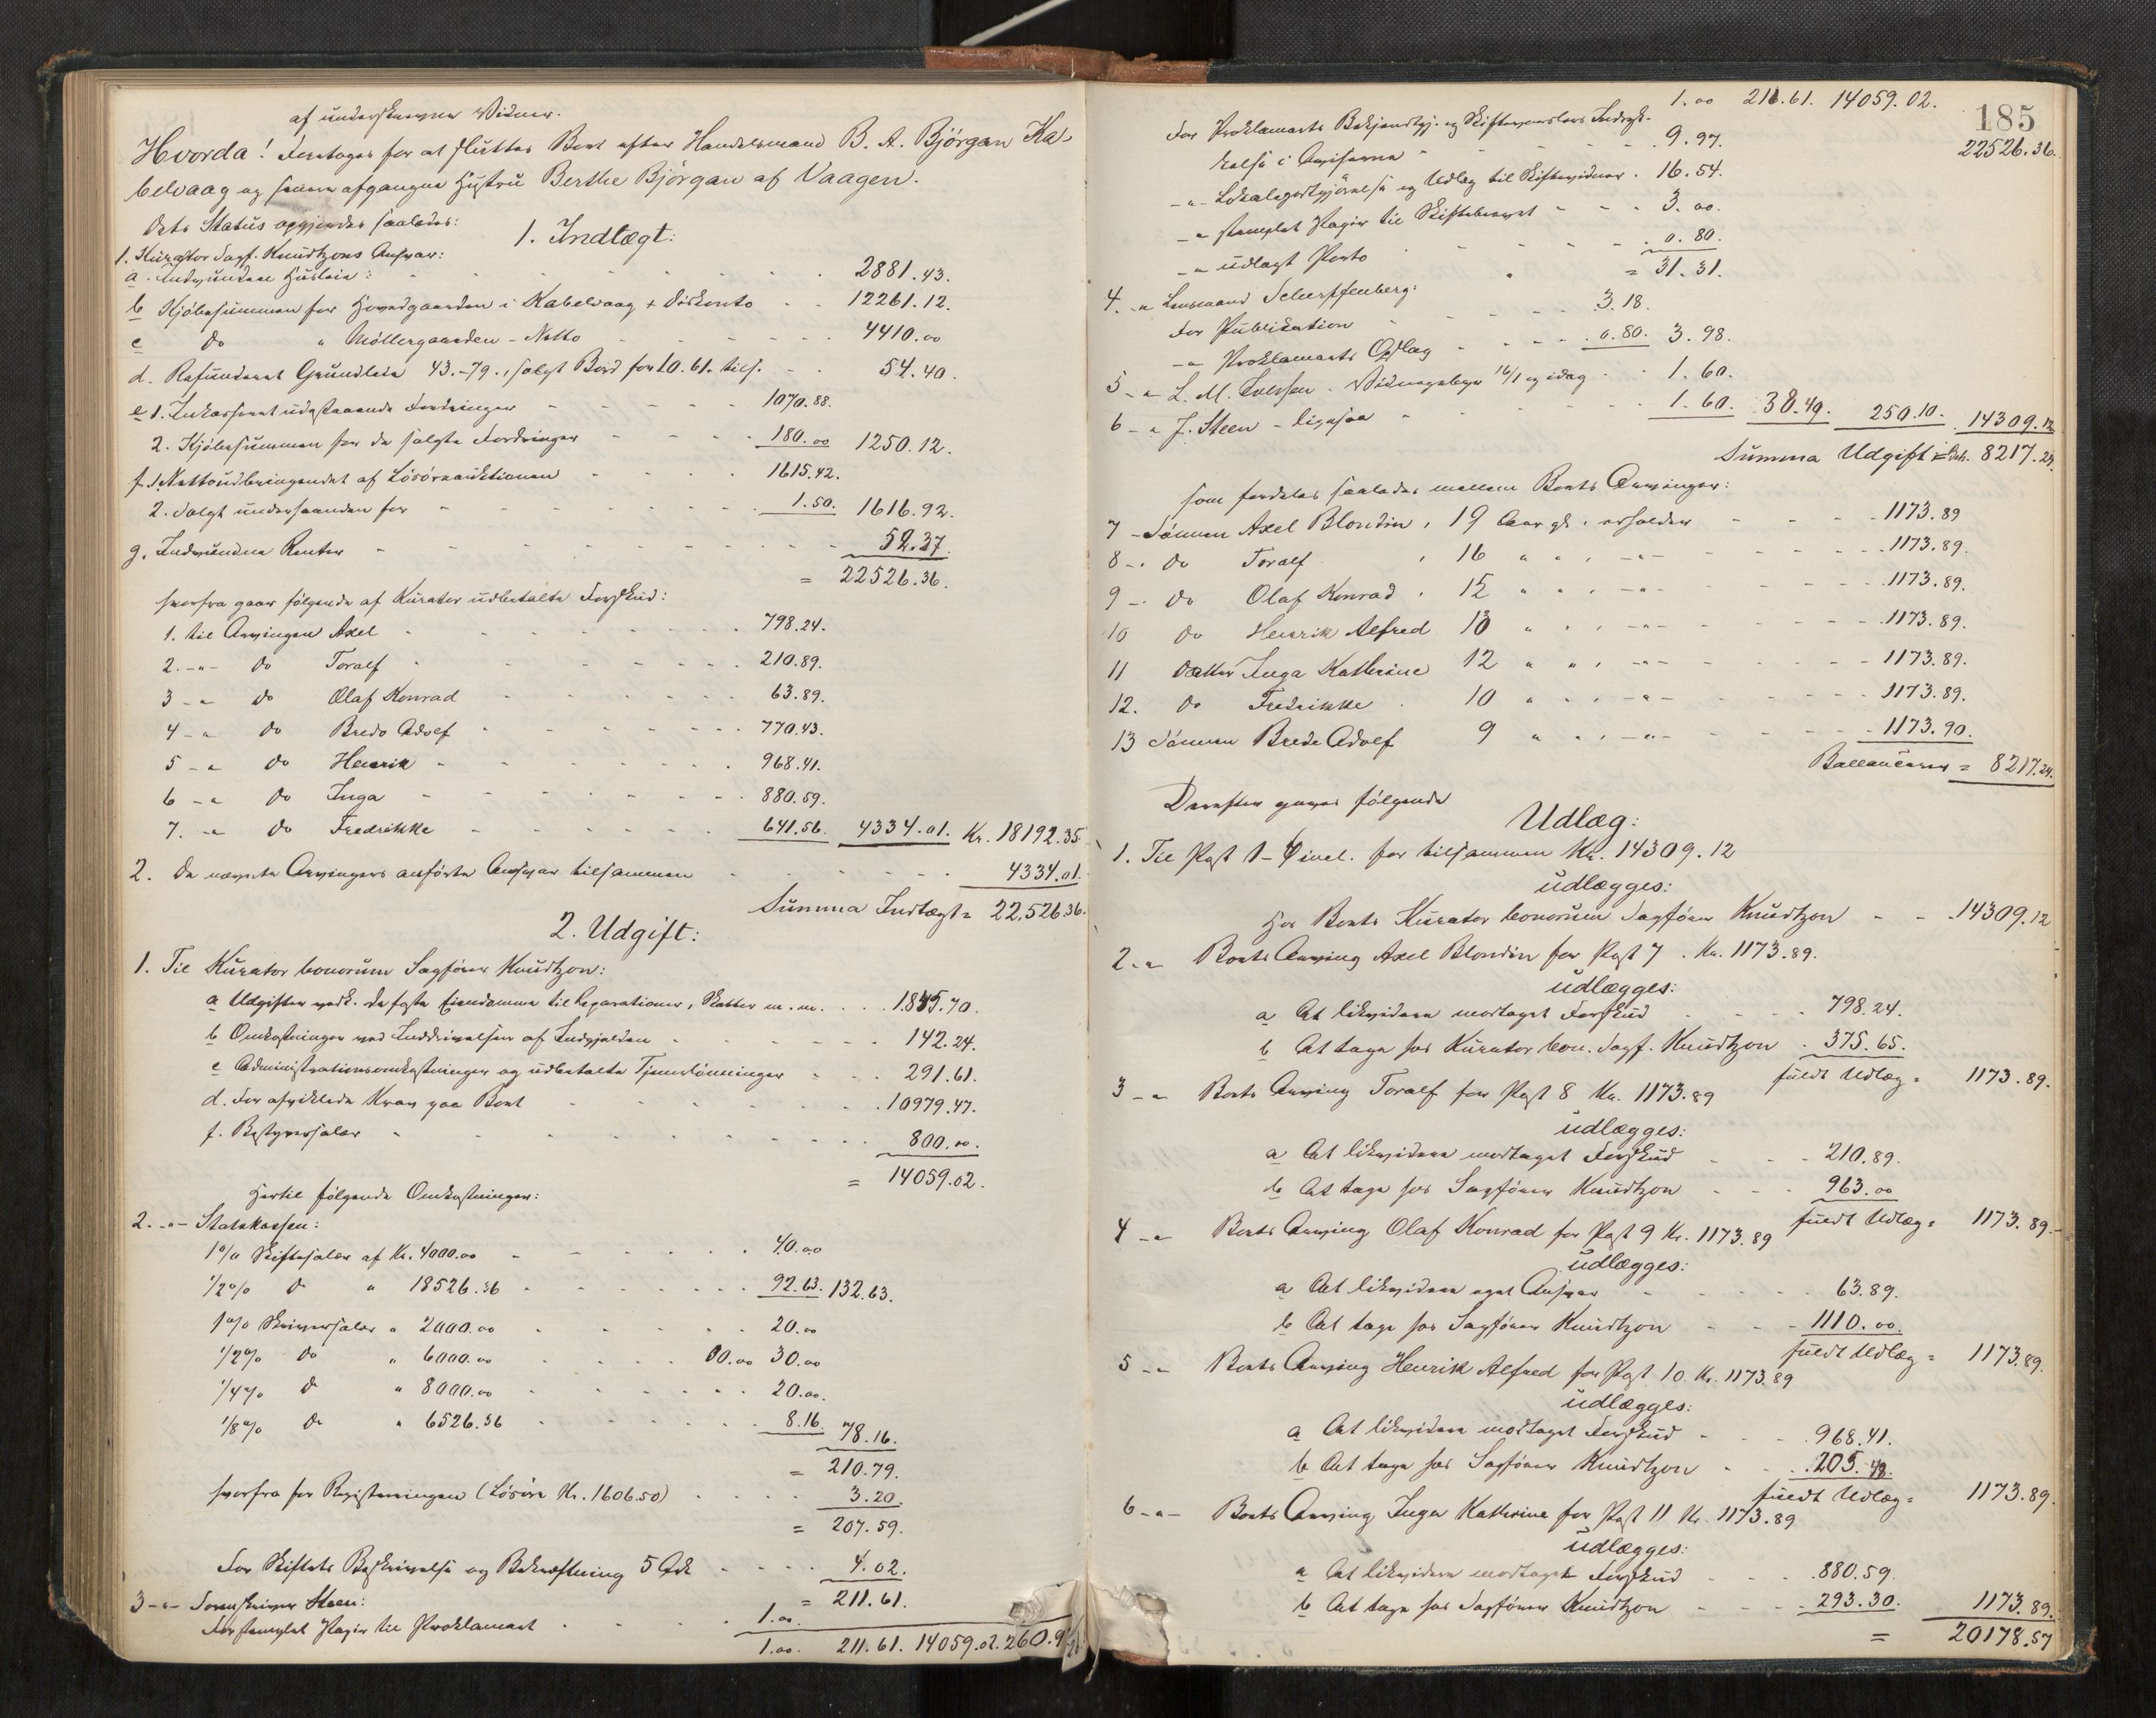 af underskrevne Vidner.
Hvorda! Foretoges for at slutte Boet efter Handelsmand B. A. Björgan Ka-
belvaag og senere afgangne Hustru Berthe Björgan af Vaagen.
Dets Status opgjordes saaledes:
1. Indtægt:
1. Kurator Sagf. Knudtzons Ansvar:
a. Indvundene Husleie: 2881.43.
b Kjöbesummen for Hovedgaarden i Kabelvaag + Diskonto 12261.12.
c do " Möllergaarden - Netto 4410.00
d. Refunderet Grundleie 43.-79., solgt Bord for 10.61. tils. 54.40.
e 1. Inkasseret udestaaende Fordringer 1070.88.
2. Kjöbesummen for de solgte Fordringer 180.00 1250.12.
f. 1. Nettoudbringendet af Lösöreauktionen 1615.42.
2. Solgt underhaanden for 1.50. 1616.92.
g. Indvundne Renter 52.37.
= 22526.36.
hvorfra gaar følgende af Kurator udbetalte Forskud:
1. til Arvingen Axel 798.24.
2. -"- do Toralf 210.89.
3 -" do Olaf Konrad 63.89.
4 -" do Bredo Adolf 770.43.
5 -" do Henrik 968.41.
6 -" do Inga 880.59.
7. -" do Fredrikke 641.56. 4334.01. Kr. 18192.35
2. De nævnte Arvingers anförte Ansvar tilsammen 4334.01.
Summa Indtægt = 22.526.36.
2. Udgift:
1. Til Kurator bonorum Sagförer Knudtzon:
a Udgifter vedk. de faste Eiendomme til Reparationer, Skatter m. m. 1845.70.
b Omkostninger ved Inddrivelsen af Indgjælden 142.24.
c Administrationsomkostninger og udbetalte Tjenerlönninger 291.61.
d. For afviklede Krav paa Boet 10979.47.
f. Bestyrersalær 800.00.
= 14059.02.
Hertil følgende Omkostninger:
2. -"- Statskassen:
1% Skiftesalær af Kr. 4000.00 40.00
1/2% do " 18526.36 92.63. 132.63.
1% Skriversalær " 2000.00 20.00
1/2% do " 6000.00 30.00 30.00
1/4% do " 8000.00 20.00.
1/8% do " 6526.36 8.16. 78.16.
= 210.79.
hvorfra for Registreringen (Lösöre Kr. 1606.50) 3.20.
= 207.59.
For Skiftets Beskrivelse og Bekræftning 5 Ark 4.02.
= 211.61.
3 -"- Sorenskriver Steen:
For stemplet Papir til Proklamaet 1.00.
1.00. 211.61. 14059.02. 260.9
185
1.00 211.61. 14059.02. 22526.36.
For Proklamaets Bekjendtgj. og Skiftevarslers Indryk-
kelse i Aviserne 9.97.
-"- Lokalegodtgjörelse og Udlæg til Skiftevidner. 16.54.
-" stemplet Papir til Skiftebrevet 3.00.
-" udlagt Porto 0.80.
= 31.31.
4. -" Lensmand Scherpfenberg:
For Publikation 3.18.
-" Proklamaets Opslag 0.80. 3.98.
5 -" L. M. Iversen. Vidnegebyr 16/1 og idag 1.60.
6 -" J. Steen - ligesaa 1.60. 38.49. 250.10. 14309.12
Summa Udgift = Beh. 8217.24.
som fordeles saaledes mellem Boets Arvinger:
7 - Sönnen Axel Blondin, 19 Aar gl., erholder 1173.89
8 -. do Toralf, 16 " ", -"- 1173.89.
9 -. do Olaf Konrad. 15 " ", -"- 1173.89.
10 do Henrik Alfred 13 " ", -"- 1173.89.
11 Datter Inga Kathrine 12 " ", -"- 1173.89.
12. do Fredrikke. 10 " ", -"- 1173.89.
13 Sönnen Brede Adolf 9 " ", -"- 1173.90.
Ballancerer = 8217.24.
Derefter gjøres følgende
Udlæg:
1. Til Post 1-6 incl. for tilsammen Kr. 14309.12
udlægges:
Hos Boets Kurator bonorum Sagförer Knudtzon 14309.12
2. -" Boets Arving Axel Blondin for Post 7. Kr. 1173.89.
udlægges:
a At likvidere modtaget Forskud 798.24.
b At tage hos Kurator bon. Sagf. Knudtzon 375.65.
fuldt Udlæg = 1173.89.
3 -" Boets Arving Toralf for Post 8 Kr. 1173.89
udlægges:
a At likvidere modtaget Forskud 210.89.
b At tage hos Sagförer Knudtzon 963.00
fuldt Udlæg = 1173.89.
4 -" Boets Arving Olaf Konrad for Post 9 Kr. 1173.89
udlægges:
a At likvidere eget Ansvar 63.89.
b At tage hos Sagförer Knudtzon 1110.00.
fuldt Udlæg = 1173.89.
5 -" Boets Arving Henrik Alfred for Post 10. Kr. 1173.89
udlægges:
a At likvidere modtaget Forskud 968.41.
b At tage hos Sagförer Knudtzon 205.48.
fuldt Udlæg = 1173.89.
6 -"- Boets Arving Inga Kathrine for Post 11 Kr. 1173.89
udlægges:
a At likvidere modtaget Forskud 880.59.
b At tage hos Sagförer Knudtzon 293.30. 1173.89.
= 20178.57